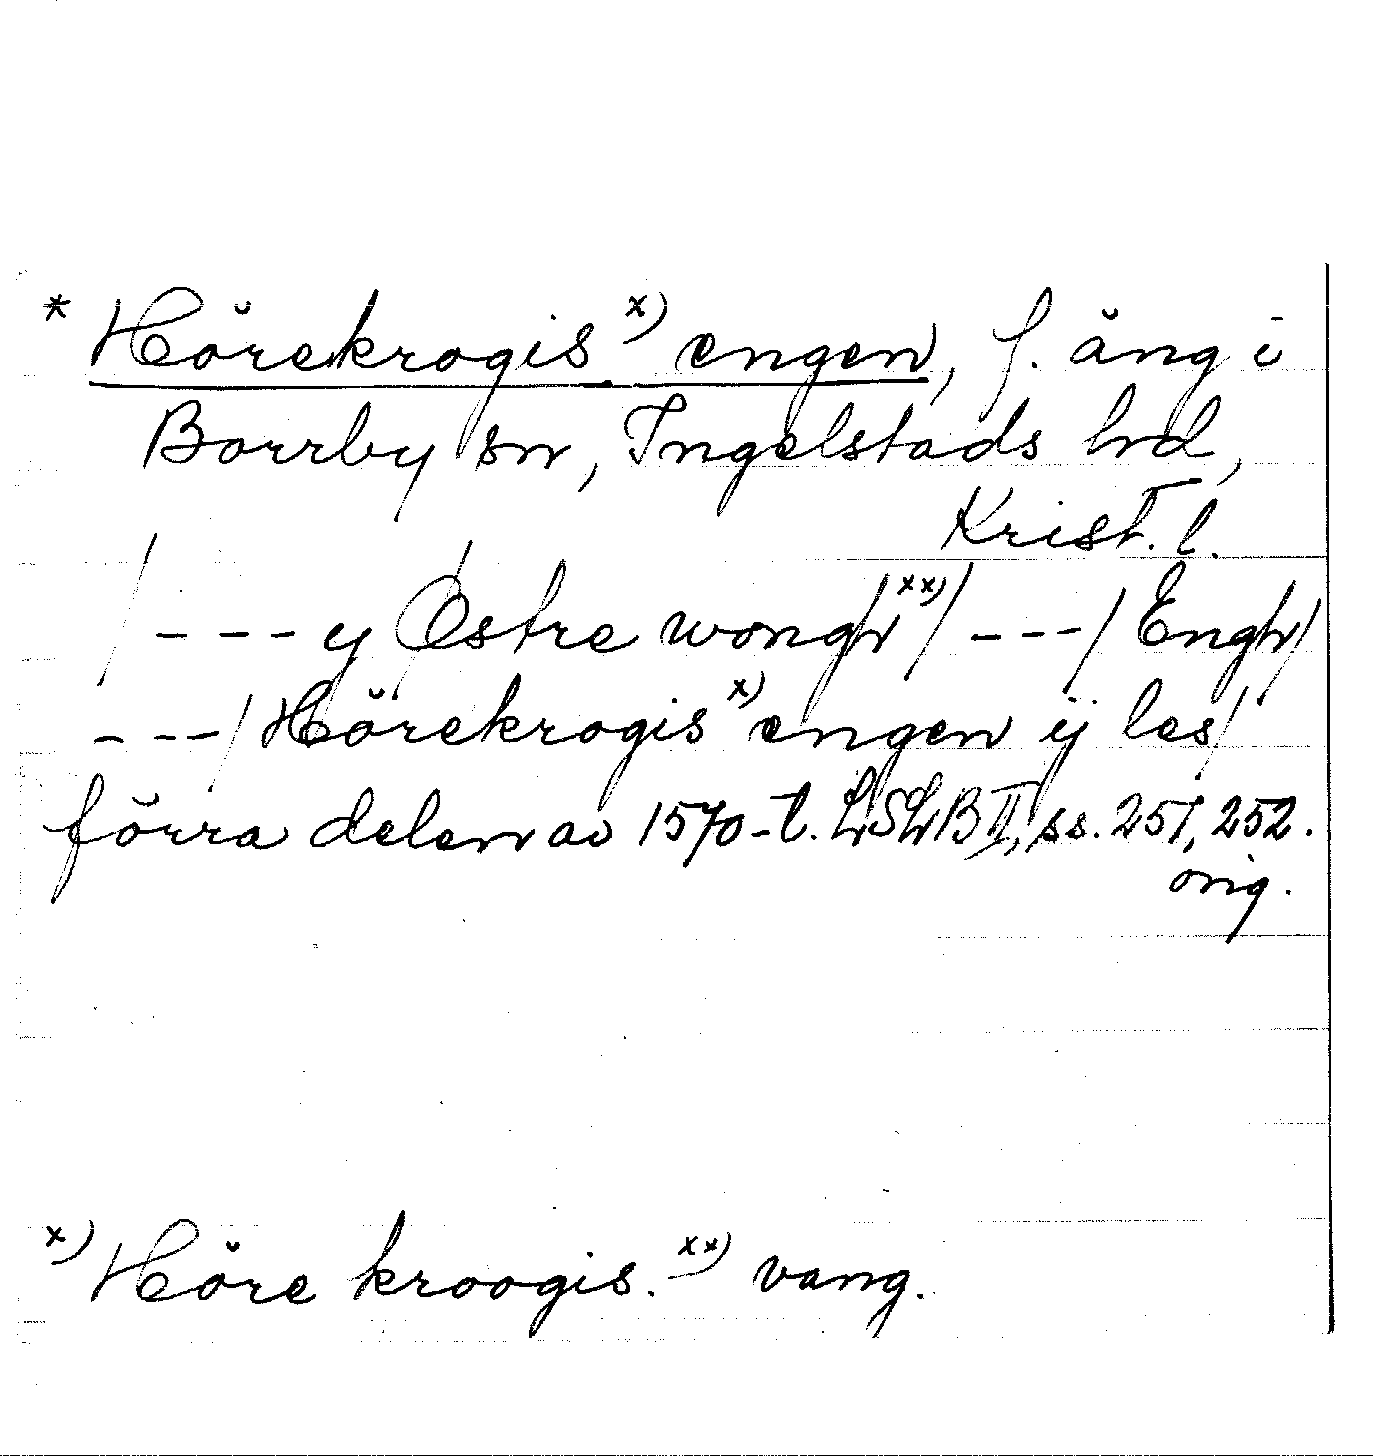 * Hörekrogis x) engen, f. äng i
Borrby sn, Ingelstads hd,
Krist. l.
/--- y Østre wongh xx)/ ---/ Engh/
---/ Hörekrogis x) engen ÿ les/
förra delen av 1570-t. LSLB II, ss. 251, 252.
orig.
x) Höre kroogis. xx) vang.